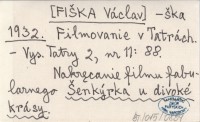 [FIŠKA Václav] -ška
1932. Filmovanie v Tatrách.
- Vys. Tatry 2, nr 11: 88.
Nakręcanie filmu fabu-
larnego Šenkýrka u divoké
krásy.